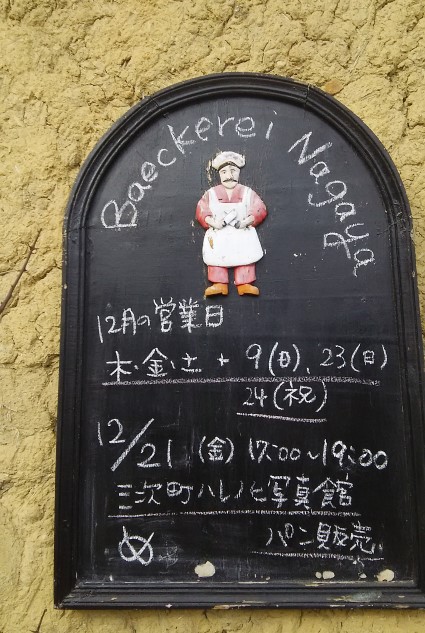 Baeckerei Nagaya
12月の営業日
木・金・土 + 9(日)、23(日)
24(祝)
12/21 (金) 17:00~19:00
三次町ハレノヒ写真館
パン販売